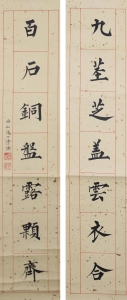 九茎芝盖雲衣合
百石銅盤露顆齊